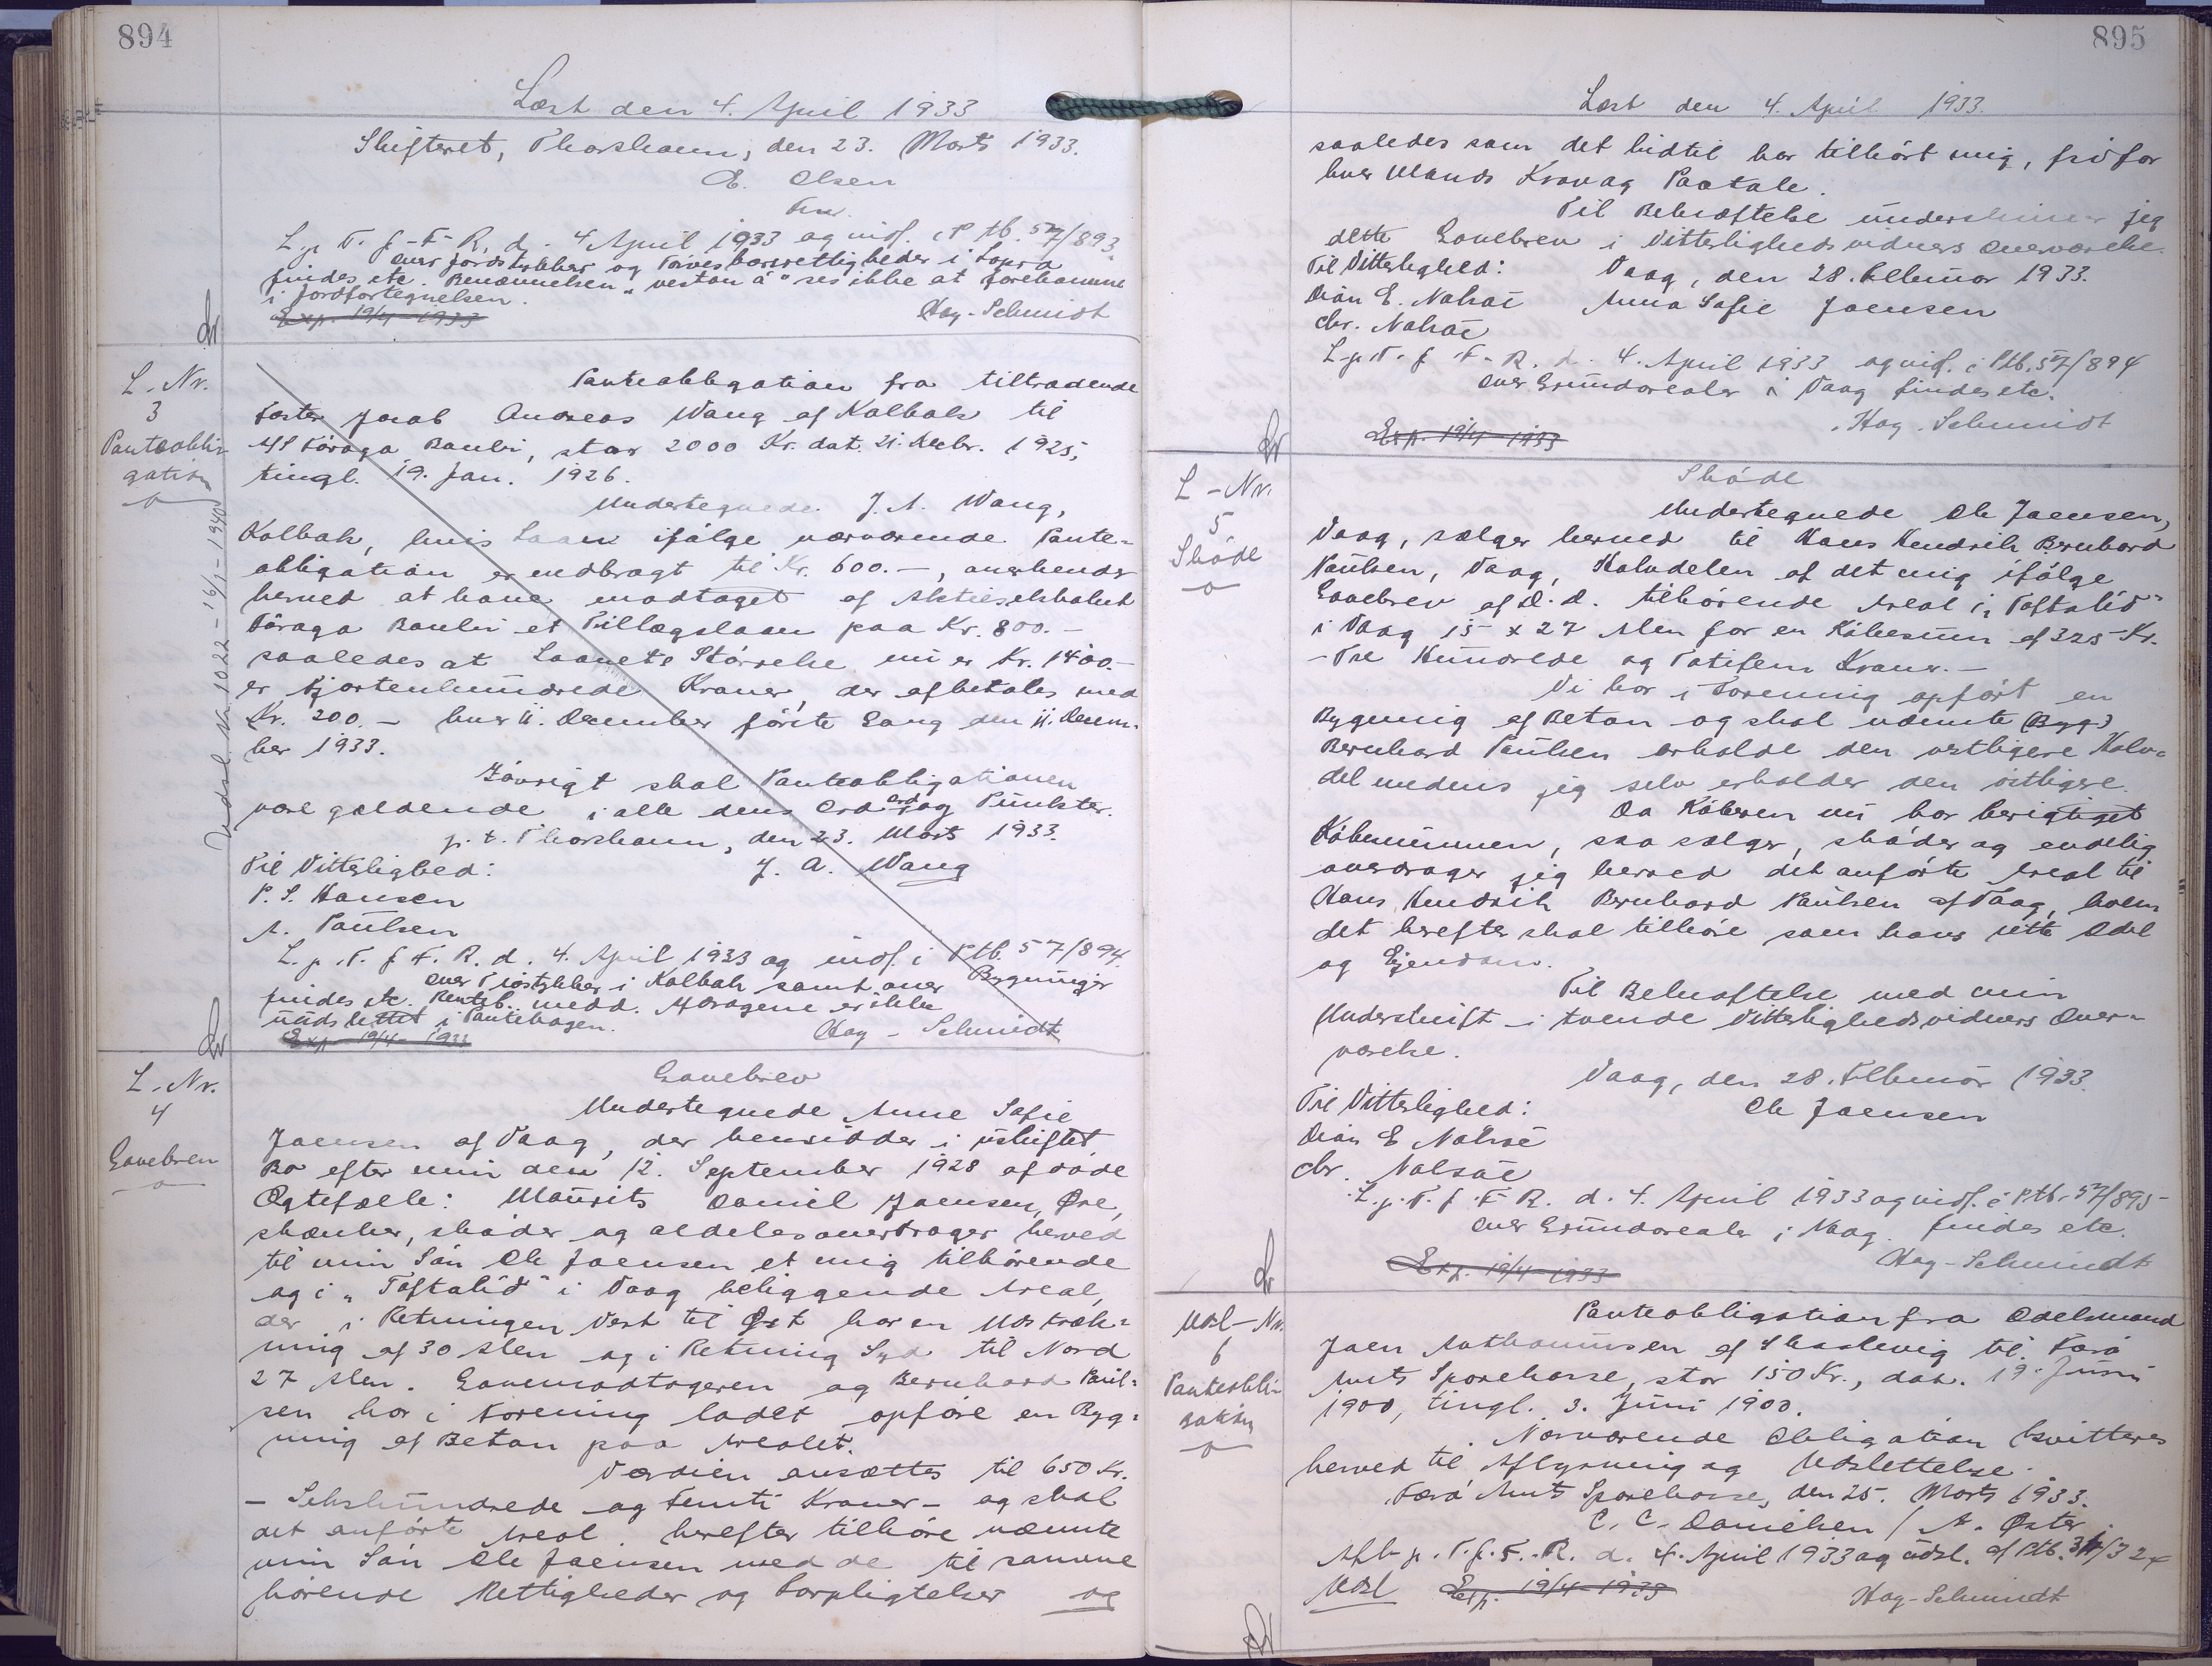 894
Læst den 4. April 1933
Skifteret, Thorshavn, den 23. Marts 1933.
E. Olsen
L. p. T. f. F. R. d. 4 April 1933 og indf. i Ptb. 57/893.
over Jordstykker og Tørveskærsrettigheder i Lopra
findes etc. Benævnelsen „vestan á" ses ikke at forekomme
i Jordfortegnelsen.
Exp. 19/4-1933 Hag-Schmidt
L. Nr.
3
Panteobli
gation
Udsl. Nr. 1022 - 16/1-1940
Panteobligation fra tiltrædende
Fæster Jacob Andreas Wang af Kalbak til
A/S Føroya Banki, stor 2000 Kr. dat. 21. Decbr. 1925,
tingl. 19. Jan. 1926.
Undertegnede J. A. Wang,
Kalbak, hvis Laan ifølge nærværende Pante-
obligation er nedbragt til Kr. 600.-, anerkender
herved at have modtaget af Aktieselskabet
Føroya Banki et Tillægslaan paa Kr. 800.-
saaledes at Laanets Størrelse nu er Kr. 1400.-
er Fjortenhundrede Kroner, der afbetales med
Kr. 200.- hver 11. December første Gang den 11. Decem-
ber 1933.
Iøvrigt skal Panteobligationen
være gældende i alle dens Ord og Punkter.
p. t. Thorshavn, den 23. Marts 1933.
Til Vitterlighed: J. A. Wang
P. S. Hansen
A. Paulsen
L. p. T. f. F. R. d. 4. April 1933 og indf. i Ptb. 57/894.
over Traðstykker i Kalbak samt over Bygninger
findes etc. Renteb. medd. Afdragene er ikke
udslettet i Pantebogen.
Exp. 19/4-1933 Hag-Schmidt
L. Nr.
4
Gavebrev
Gavebrev
Undertegnede Anne Sofie
Joensen af Vaag, der hensidder i uskiftet
Bo efter min den 12. September 1928 afdøde
Ægtefælle: Maurits Daniel Joensen, Øre,
skænker, skøder og aldeles overdrager herved
til min Søn Ole Joensen et mig tilhørende
og i „Toftalið" i Vaag beliggende Areal,
der i Retningen Vest til Øst har en Udstræk-
ning af 30 Alen og i Retning Syd til Nord
27 Alen. Gavemodtageren og Bernhard Poul-
sen har i Forening ladet opføre en Byg-
ning af Beton paa Arealet.
Værdien ansættes til 650 Kr.
- Sekshundrede og Femti Kroner - og skal
det anførte Areal herefter tilhøre nævnte
min Søn Ole Joensen med de til samme
hørende Rettigheder og Forpligtelser og
895
Læst den 4. April 1933.
saaledes som det hidtil har tilhørt mig, fri for
hver Mands Krav og Paatale.
Til Bekræftelse underskriver jeg
dette Gavebrev i Vitterlighedsvidners Overværelse.
Til Vitterlighed: Vaag, den 28. Februar 1933.
Dion E. Nolsøe Anna Sofie Joensen
Chr. Nolsøe
L. p. T. f. F. R. d. 4. April 1933 og indf. i Ptb. 57/894
over Grundarealer i Vaag findes etc.
Exp. 19/4-1933 Hag-Schmidt
L-Nr.
5
Skøde
Skøde
Undertegnede Ole Joensen,
Vaag, sælger herved til Hans Hendrik Bernhard
Paulsen, Vaag, Halvdelen af det mig ifølge
Gavebrev af D. D. tilhørende Areal i „Toftalið"
i Vaag 15 x 27 Alen for en Købesum af 325 Kr.
- Tre Hundrede og Totifem Kroner.-
Vi har i Forening opført en
Bygning af Beton og skal nævnte (Byg-)
Bernhard Paulsen erholde den vestligere Halv-
del medens jeg selv erholder den østligere.
Da Køberen nu har berigtiget
Købesummen, saa sælger, skøder og endelig
overdrager jeg herved det anførte Areal til
Hans Hendrik Bernhard Paulsen af Vaag, hvem
det herefter skal tilhøre som hans rette Odel
og Ejendom.
Til Bekræftelse med min
Underskrift i tvende Vitterlighedsvidners Over-
værelse.
Vaag, den 28. Februar 1933.
Til Vitterlighed: Ole Joensen
Dion E Nolsøe
Chr. Nolsøe
L. p. T. f. F. R. d. 4. April 1933 og indf. i Ptb. 57/895
over Grundarealer i Vaag findes etc.
Exp. 19/4-1933 Hag-Schmidt
Udsl-Nr.
6
Panteobli
gation
Panteobligation fra Odelsmand
Joen Anthoniussen af Skaalevig til Færø
Amts Sparekasse, stor 150 Kr., dat. 19. Juni
1900, tingl. 3. Juni 1900.
Nærværende Obligation kvitteres
herved til Aflysning og Udslettelse.
Færø Amts Sparekasse, den 25. Marts 1933.
C. C. Danielsen / A. Øster
Afl. p. T. f. F. R. d. 4. April 1933 og udsl. af Ptb. 31/324
Udsl Exp. 19/4-1933 Hag-Schmidt